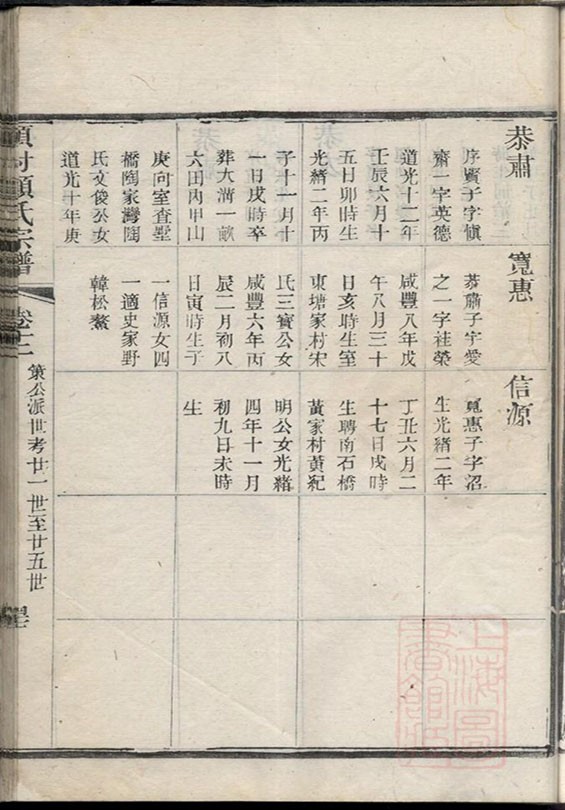 恭肅
序賢子字愼
齋一字英德
道光十二年
壬辰六月十
五日卯時生
光緒二年丙
子十一月十
一日戌時卒
葬大溝一畝
六田丙甲山
庚向室查墅
橋陶家灣陶
氏文俊公女
道光十年庚
寬惠
恭肅子字愛
之一字祍榮
咸豐八年戊
午八月三十
日亥時生室
東塘家村宋
氏三寶公女
咸豐六年丙
辰二月初八
日寅時生子
一信源女四
一適史家野
韓松鰲
信源
寬惠子字沼
生光緒二年
丁丑六月二
十七日戌時
生聘南石橋
黃家村黃紀
明公女光緒
四年十一月
初九日未時
生
項村顧氏宗譜
卷十二
策公派世考廿一世至廿五世
上海圖書館藏